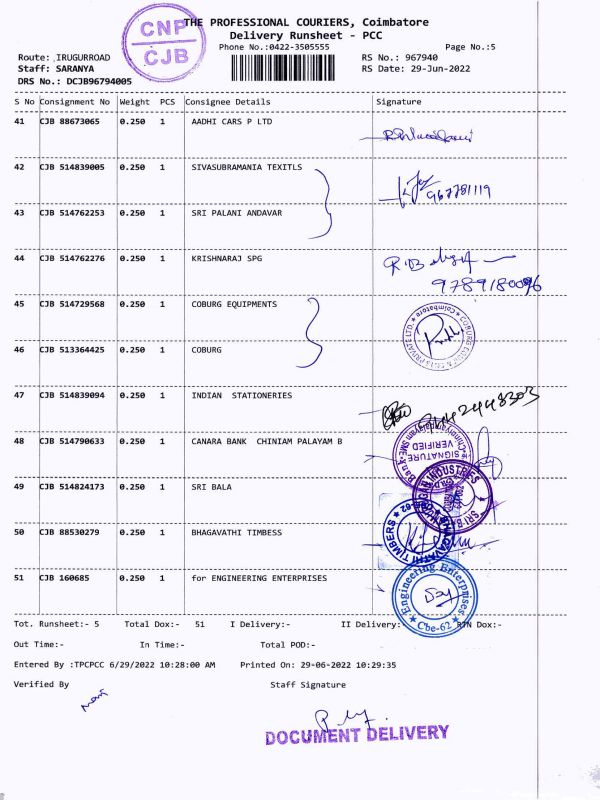 CNP
CJB
THE PROFESSIONAL COURIERS, Coimbatore
Delivery Runsheet - PCC
Phone No.:0422-3505555 Page No.:5
Route: IRUGURROAD RS No.: 967940
Staff: SARANYA RS Date: 29-Jun-2022
DRS No.: DCJB96794005
S No Consignment No Weight PCS Consignee Details Signature
41 CJB 88673065 0.250 1 AADHI CARS P LTD
42 CJB 514839005 0.250 1 SIVASUBRAMANIA TEXITLS
967781119
43 CJB 514762253 0.250 1 SRI PALANI ANDAVAR
44 CJB 514762276 0.250 1 KRISHNARAJ SPG
9789180096
45 CJB 514729568 0.250 1 COBURG EQUIPMENTS
COBURG EQUIPMENTS PRIVATE LTD. ★ Coimbatore ★
46 CJB 513364425 0.250 1 COBURG
47 CJB 514839094 0.250 1 INDIAN STATIONERIES
48 CJB 514790633 0.250 1 CANARA BANK CHINIAM PALAYAM B
SIGNATURE
VERIFIED
49 CJB 514824173 0.250 1 SRI BALA
50 CJB 88530279 0.250 1 BHAGAVATHI TIMBESS
BHAGAVATHI TIMBERS ★
51 CJB 160685 0.250 1 for ENGINEERING ENTERPRISES
★ Engineering Enterprises ★ Cbe-62
Tot. Runsheet:- 5 Total Dox:- 51 I Delivery:- II Delivery:- RTN Dox:-
Out Time:- In Time:- Total POD:-
Entered By :TPCPCC 6/29/2022 10:28:00 AM Printed On: 29-06-2022 10:29:35
Verified By Staff Signature
DOCUMENT DELIVERY